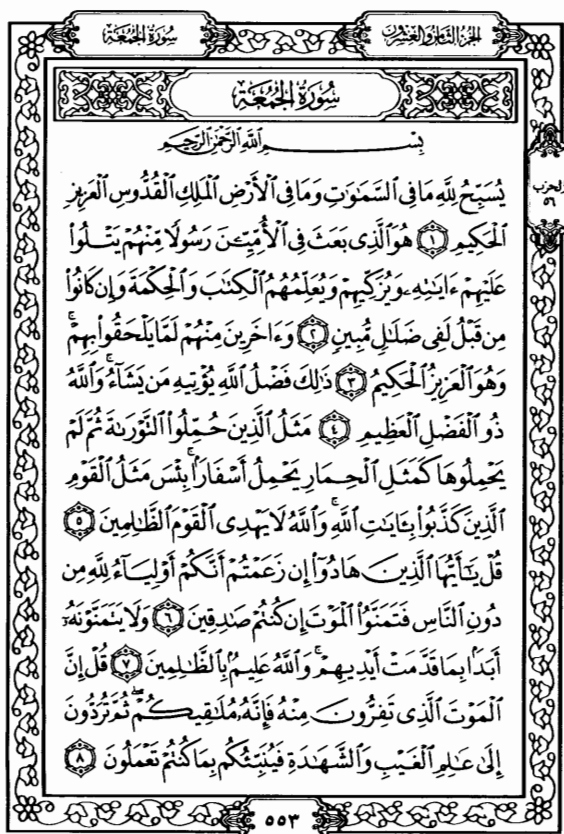 سُورَةُ الجُمُعَةِ
الجُزْءُ الثَّامِنُ وَالعِشْرُونَ
سُورَةُ الجُمُعَةِ
بِسْمِ اللَّهِ الرَّحْمَٰنِ الرَّحِيمِ
يُسَبِّحُ لِلَّهِ مَا فِي السَّمَٰوَٰتِ وَمَا فِي الْأَرْضِ الْمَلِكِ الْقُدُّوسِ الْعَزِيزِ
الحزب
٥٦
الْحَكِيمِ ١ هُوَ الَّذِي بَعَثَ فِي الْأُمِّيِّـۧنَ رَسُولًا مِّنْهُمْ يَتْلُوا۟
عَلَيْهِمْ ءَايَٰتِهِۦ وَيُزَكِّيهِمْ وَيُعَلِّمُهُمُ الْكِتَٰبَ وَالْحِكْمَةَ وَإِن كَانُوا۟
مِن قَبْلُ لَفِي ضَلَٰلٍ مُّبِينٍ ٢ وَءَاخَرِينَ مِنْهُمْ لَمَّا يَلْحَقُوا۟ بِهِمْ ۚ
وَهُوَ الْعَزِيزُ الْحَكِيمُ ٣ ذَٰلِكَ فَضْلُ اللَّهِ يُؤْتِيهِ مَن يَشَآءُ ۚ وَاللَّهُ
ذُو الْفَضْلِ الْعَظِيمِ ٤ مَثَلُ الَّذِينَ حُمِّلُوا۟ التَّوْرَىٰةَ ثُمَّ لَمْ
يَحْمِلُوهَا كَمَثَلِ الْحِمَارِ يَحْمِلُ أَسْفَارًۢا ۚ بِئْسَ مَثَلُ الْقَوْمِ
الَّذِينَ كَذَّبُوا۟ بِـَٔايَٰتِ اللَّهِ ۚ وَاللَّهُ لَا يَهْدِي الْقَوْمَ الظَّٰلِمِينَ ٥
قُلْ يَٰٓأَيُّهَا الَّذِينَ هَادُوٓا۟ إِن زَعَمْتُمْ أَنَّكُمْ أَوْلِيَآءُ لِلَّهِ مِن
دُونِ النَّاسِ فَتَمَنَّوُا۟ الْمَوْتَ إِن كُنتُمْ صَٰدِقِينَ ٦ وَلَا يَتَمَنَّوْنَهُۥٓ
أَبَدًۢا بِمَا قَدَّمَتْ أَيْدِيهِمْ ۚ وَاللَّهُ عَلِيمٌۢ بِالظَّٰلِمِينَ ٧ قُلْ إِنَّ
الْمَوْتَ الَّذِي تَفِرُّونَ مِنْهُ فَإِنَّهُۥ مُلَٰقِيكُمْ ۖ ثُمَّ تُرَدُّونَ
إِلَىٰ عَٰلِمِ الْغَيْبِ وَالشَّهَٰدَةِ فَيُنَبِّئُكُم بِمَا كُنتُمْ تَعْمَلُونَ ٨
٥٥٣